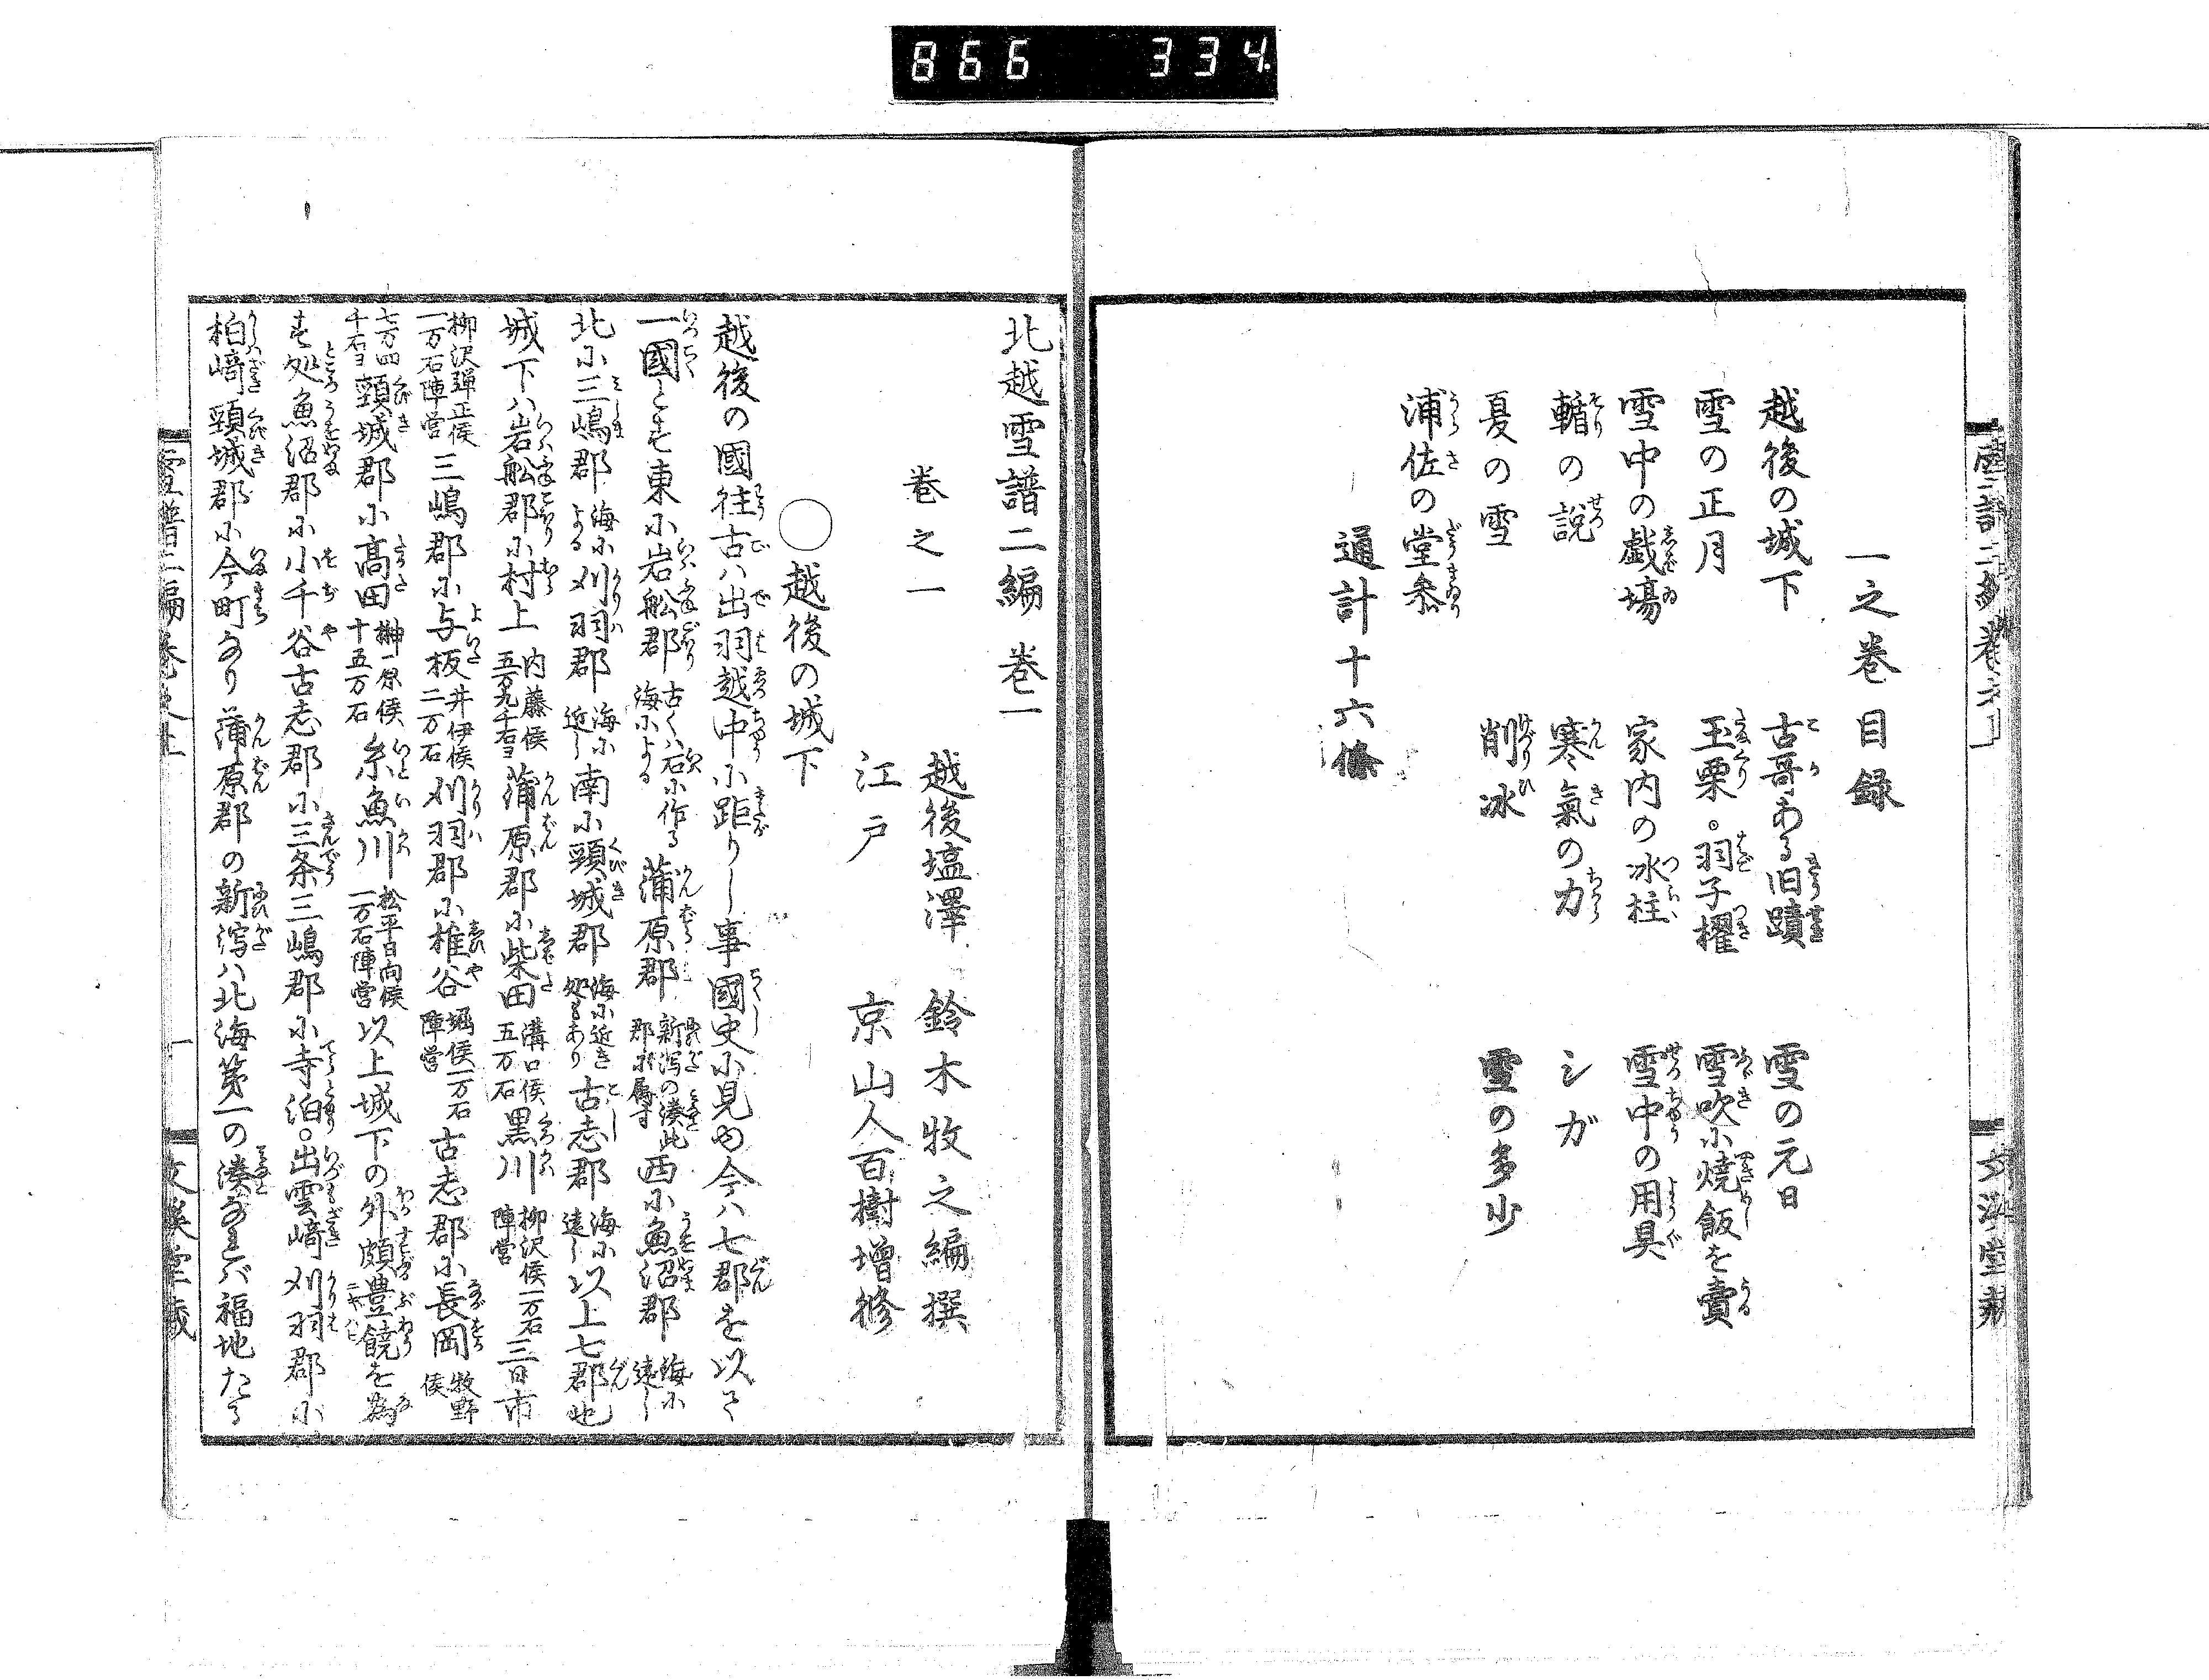 866 334
一之巻目録
越後の城下 古哥ある旧蹟 雪の元日
雪の正月 玉栗。羽子擢 雪吹に焼飯を賣
雪中の戯場 家内の氷柱 雪中の用具
輴の説 寒氣の力 シガ
夏の雪 削氷 雪の多少
浦佐の堂参
通計十六條
北越雪譜二編 巻一
越後塩澤 鈴木牧之編撰
巻之一
江戸 京山人百樹増修
○越後の城下
越後の國往古ハ出羽越中に距りし事國史に見ゆ今ハ七郡を以て
一國とす東に岩舩郡 古くハ石に作る海による 蒲原郡 新潟の湊此郡に属す 西に魚沼郡 海に遠し
北に三嶋郡 海による 刈羽郡 海に近し 南に頸城郡 海に近き処もあり 古志郡 海に遠し 以上七郡也
城下ハ岩舩郡に村上 内藤侯五万九千石ヨ 蒲原郡に柴田 溝口侯五万石 黒川 柳沢侯一万石陣営 三日市
柳沢弾正侯一万石陣営 三嶋郡に与板 井伊侯二万石 刈羽郡に椎谷 堀侯一万石陣営 古志郡に長岡 牧野侯
七万四千石ヨ 頸城郡に高田 榊原侯十五万石 糸魚川 松平日向侯一万石陣営 以上城下の外頗豊饒を為
す処魚沼郡に小千谷古志郡に三条三嶋郡に寺泊。出雲﨑刈羽郡に
柏﨑頸城郡に今町なり蒲原郡の新潟ハ北海第一の湊なれバ福地たる
雪譜二編巻之上 一 文溪堂蔵